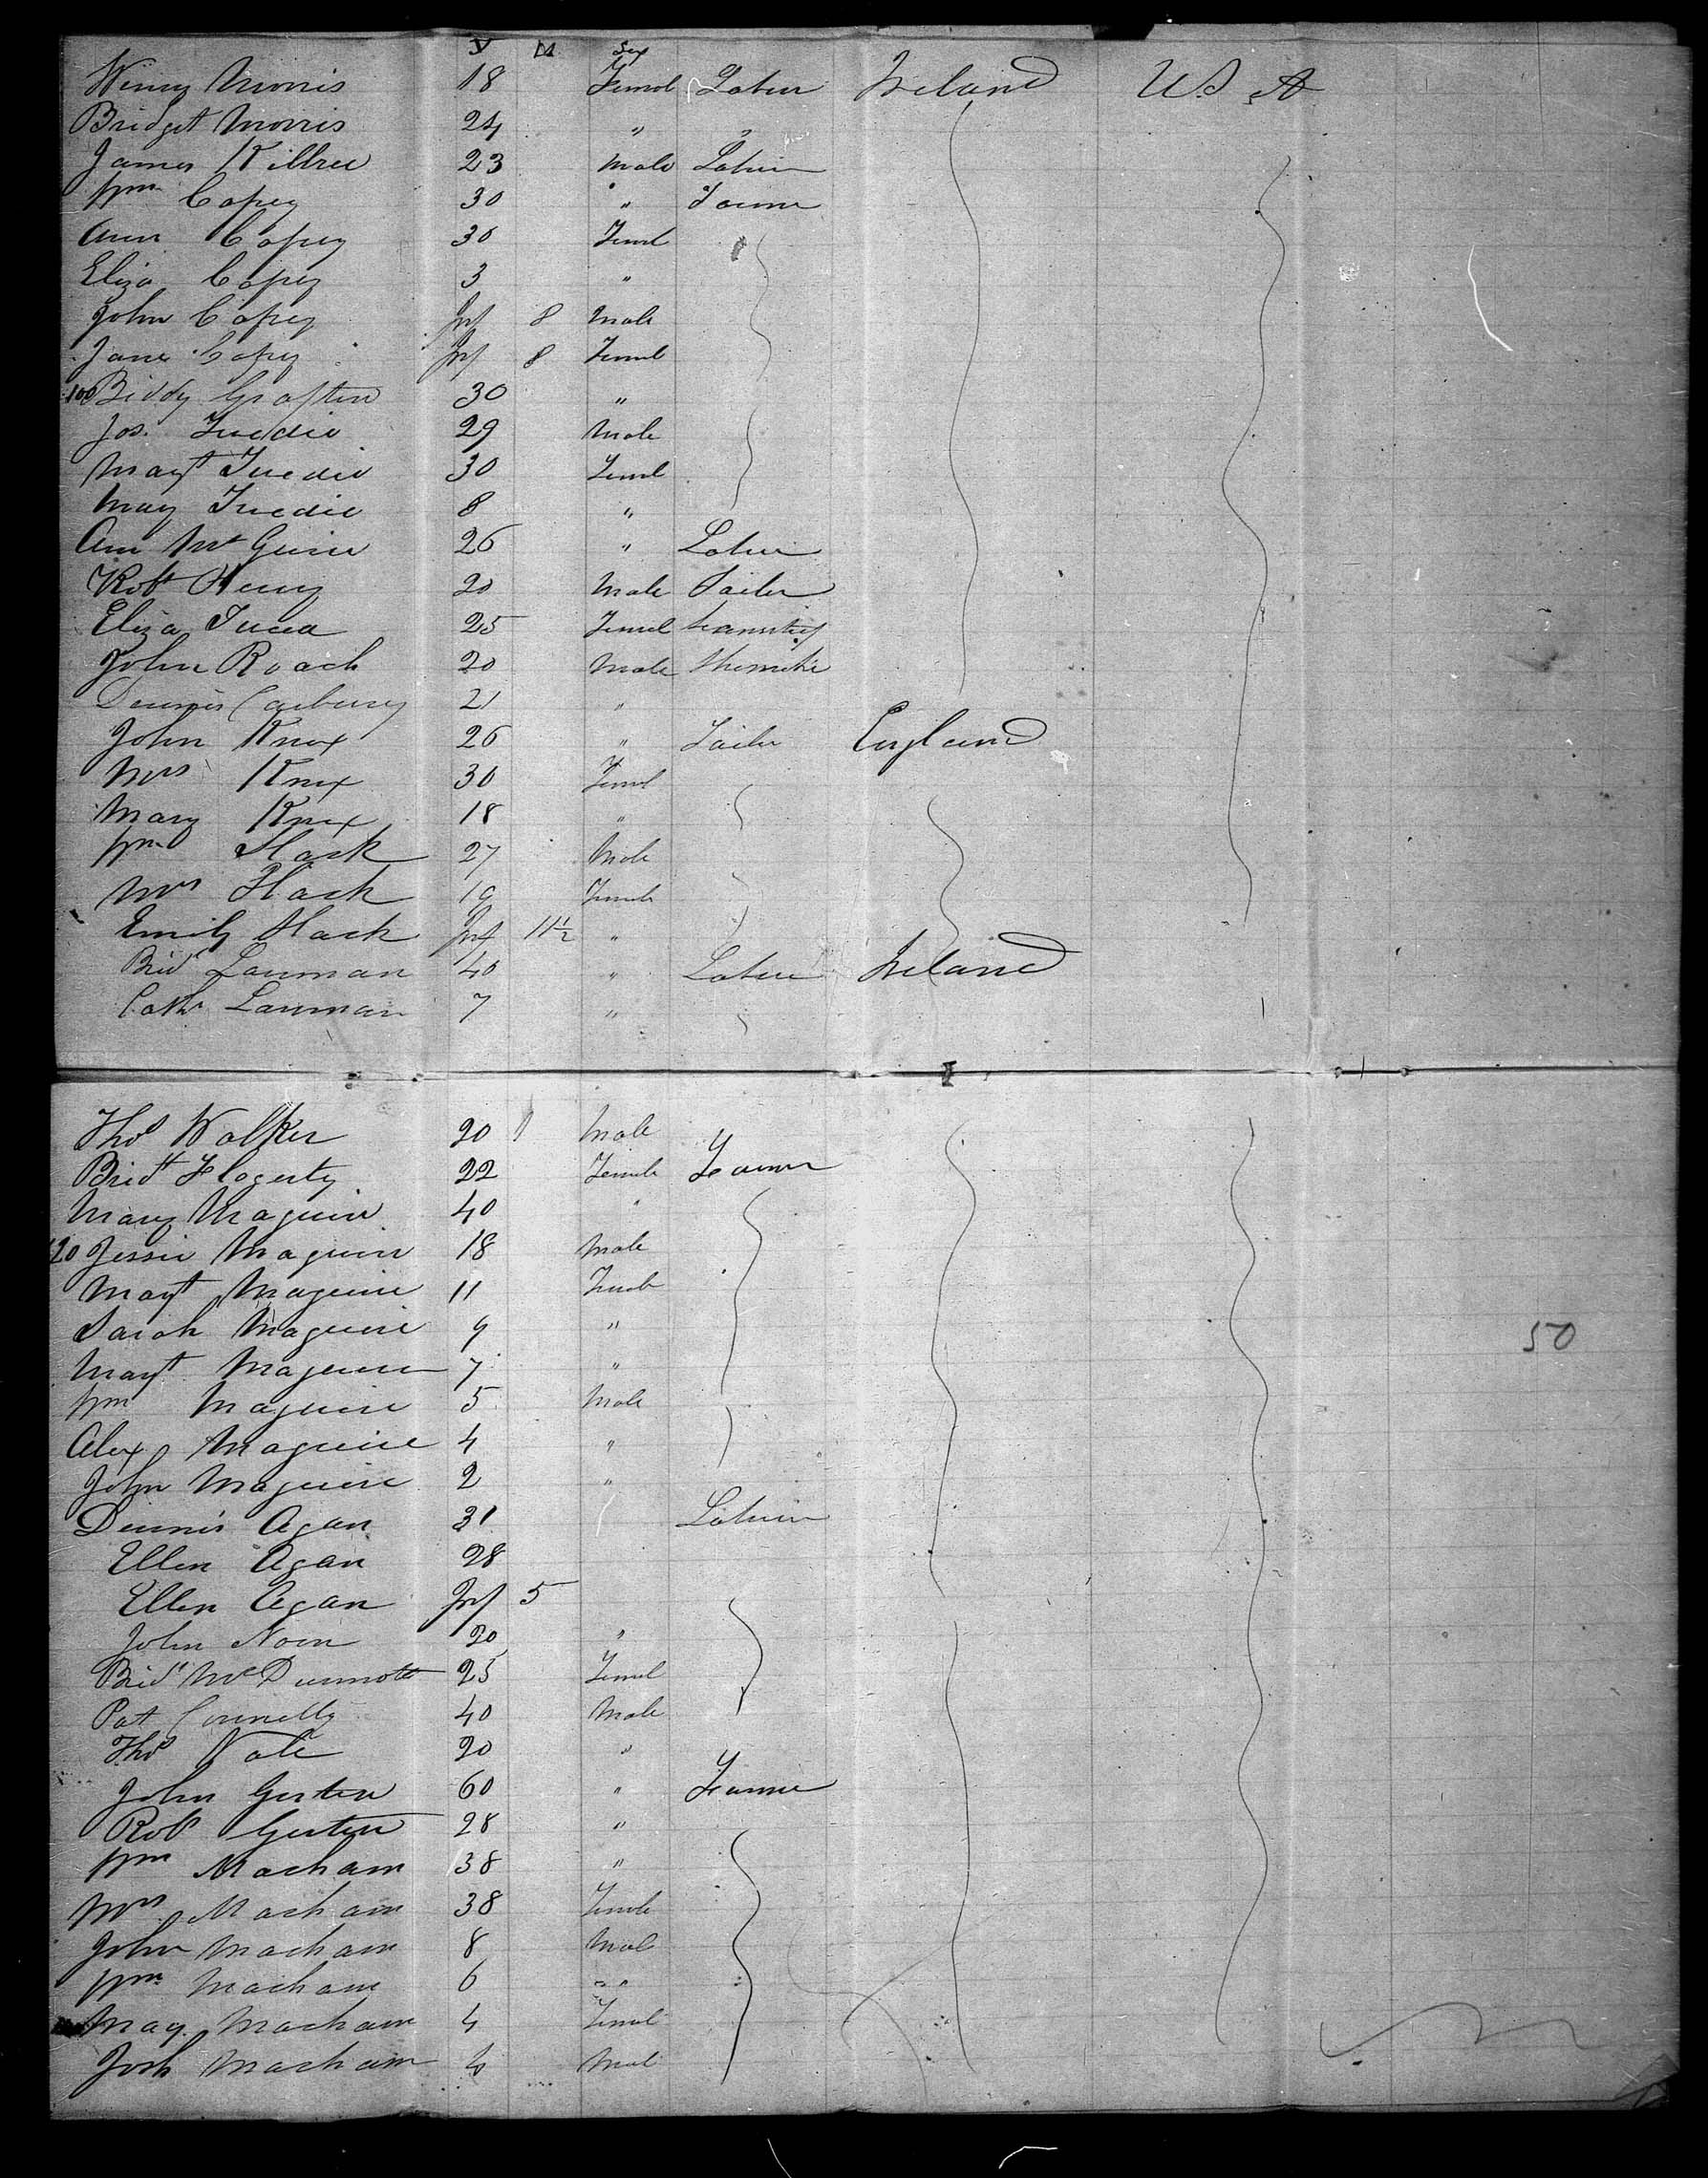 Y M Sex
Winny Morris 18 Femal Labur Ireland U S A
Bridget Morris 24 " "
James Kilbree 23 Male Labur
Wm Copey 30 " Farmer
Ann Copey 30 Feml
Eliza Copey 3 "
John Copey Inf 8 Male
Jane Copey Inf 8 Femal
100 Biddy Graften 30 "
Jos. Tuedie 29 Male
Magt Tuedie 30 Feml
May Tuedie 8 "
Ann McGuire 26 " Labur
Robt Henry 20 Male Sailer
Eliza 25 Femel
John Roach 20 Male
Dennis Carbury 21 "
John Knox 26 " Tailer England
Mrs Knox 30 Femal
Mary Knox 18 "
Wm Hack 27 Male
Mrs Hack 19 Femal
Emily Hack Inf 11½ "
Brid Lanman 40 " Labur Ireland
Cath Lanman 7 "
Thos Walker 20 Male
Bridt Flogerty 22 Female Farmer
Mary Maguire 40 "
120 Jessie Maguire 18 Male
Magt Maguire 11 Femal
Sarah Maguire 9 "
Magt Maguire 7 "
Wm Maguire 5 Male
Alex Maguire 4 "
John Maguire 2 "
Dennis Agan 31 Labur
Ellen Agan 28
Ellen Agan Inf 5
John 20 "
Brid McDermott 25 Femel
Pat Connelly 40 Male
Thos 20 "
John Gerten 60 " Farmer
Robt Gerten 28 "
Wm Macham 38 "
Mrs Macham 38 Female
John Macham 8 Mal
Wm Macham 6 "
May Macham 4 Femal
Josh Macham Mal
50